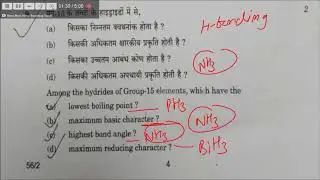 9. ग्रुप-15 के तत्वों के हाइड्राइडों में से,
2
H-bonding
(a) किसका निम्नतम क्वथनांक होता है ?
(b) किसकी अधिकतम क्षारकीय प्रकृति होती है ?
(c) किसका उच्चतम आबंध कोण होता है ?
NH3
(d) किसकी अधिकतम अपचायी प्रकृति होती है ?
Among the hydrides of Group-15 elements, which have the
(a) lowest boiling point ? PH3
(b) maximum basic character ? NH3
(c) highest bond angle ? NH3
(d) maximum reducing character ? BiH3
56/2
4